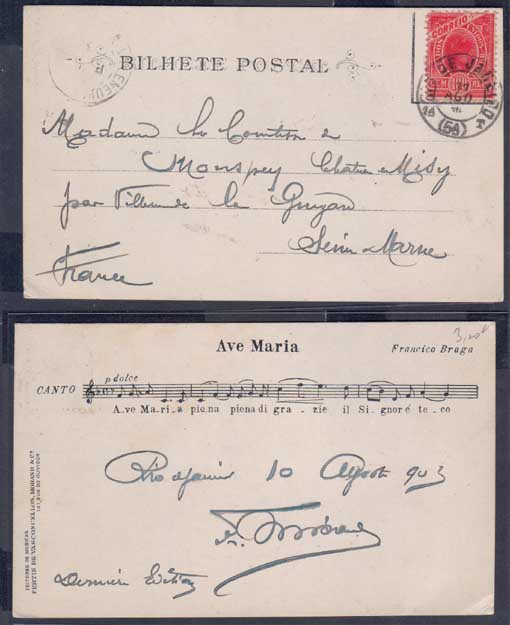 BILHETE POSTAL
CORREIO
Madame La Comtesse de
Monspey Chateau Misy
par Villeneuve la Guyard
Seine & Marne
France
Ave Maria
Francico Braga
p dolce
CANTO
A-ve Ma-ri-a pie-na piena di gra - zie il Si - gnor é te - co
Rio de Janeiro 10 Agosto 903
Dernière Edition
EDITORES DE MUSICAS
FERTIN DE VASCONCELLOS, MORAND & Cª
147, RUA DO OUVIDOR
3,00